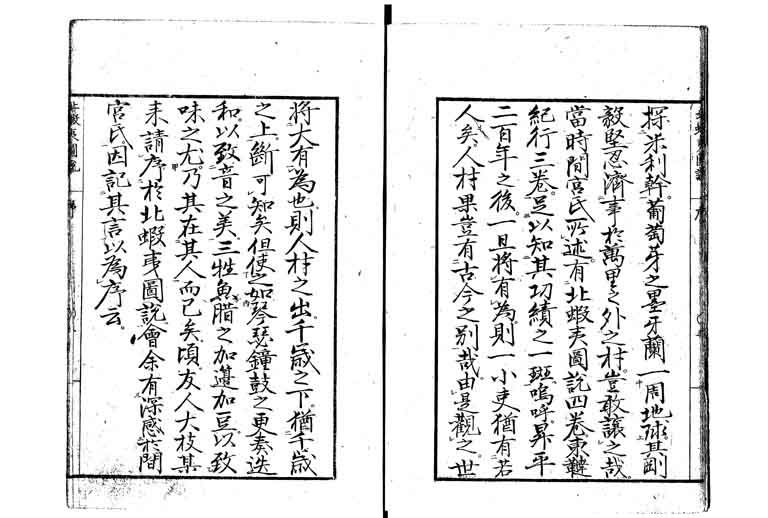 探米利幹葡萄牙之墨牙蘭一周地球其剛
毅堅忍濟事於萬里之外之材豈敢讓之哉
當時間宮氏所述有北蝦夷圖説四卷東韃
紀行三卷足以知其功績之一斑嗚呼昇平
二百年之後一旦將有為則一小吏猶有若
人矣人材果豈有古今之別哉由是觀之世
將大有為也則人材之出千歳之下猶千歳
之上斷可知矣但使之如琴瑟鐘鼓之更奏迭
和以致音之美三牲魚腊之加籩加豆以致
味之尤乃其在其人而已矣頃友人大枝某
来請序於北蝦夷圖説會余有深感於間
宮氏因記其言以為序云
北蝦夷圖説 序